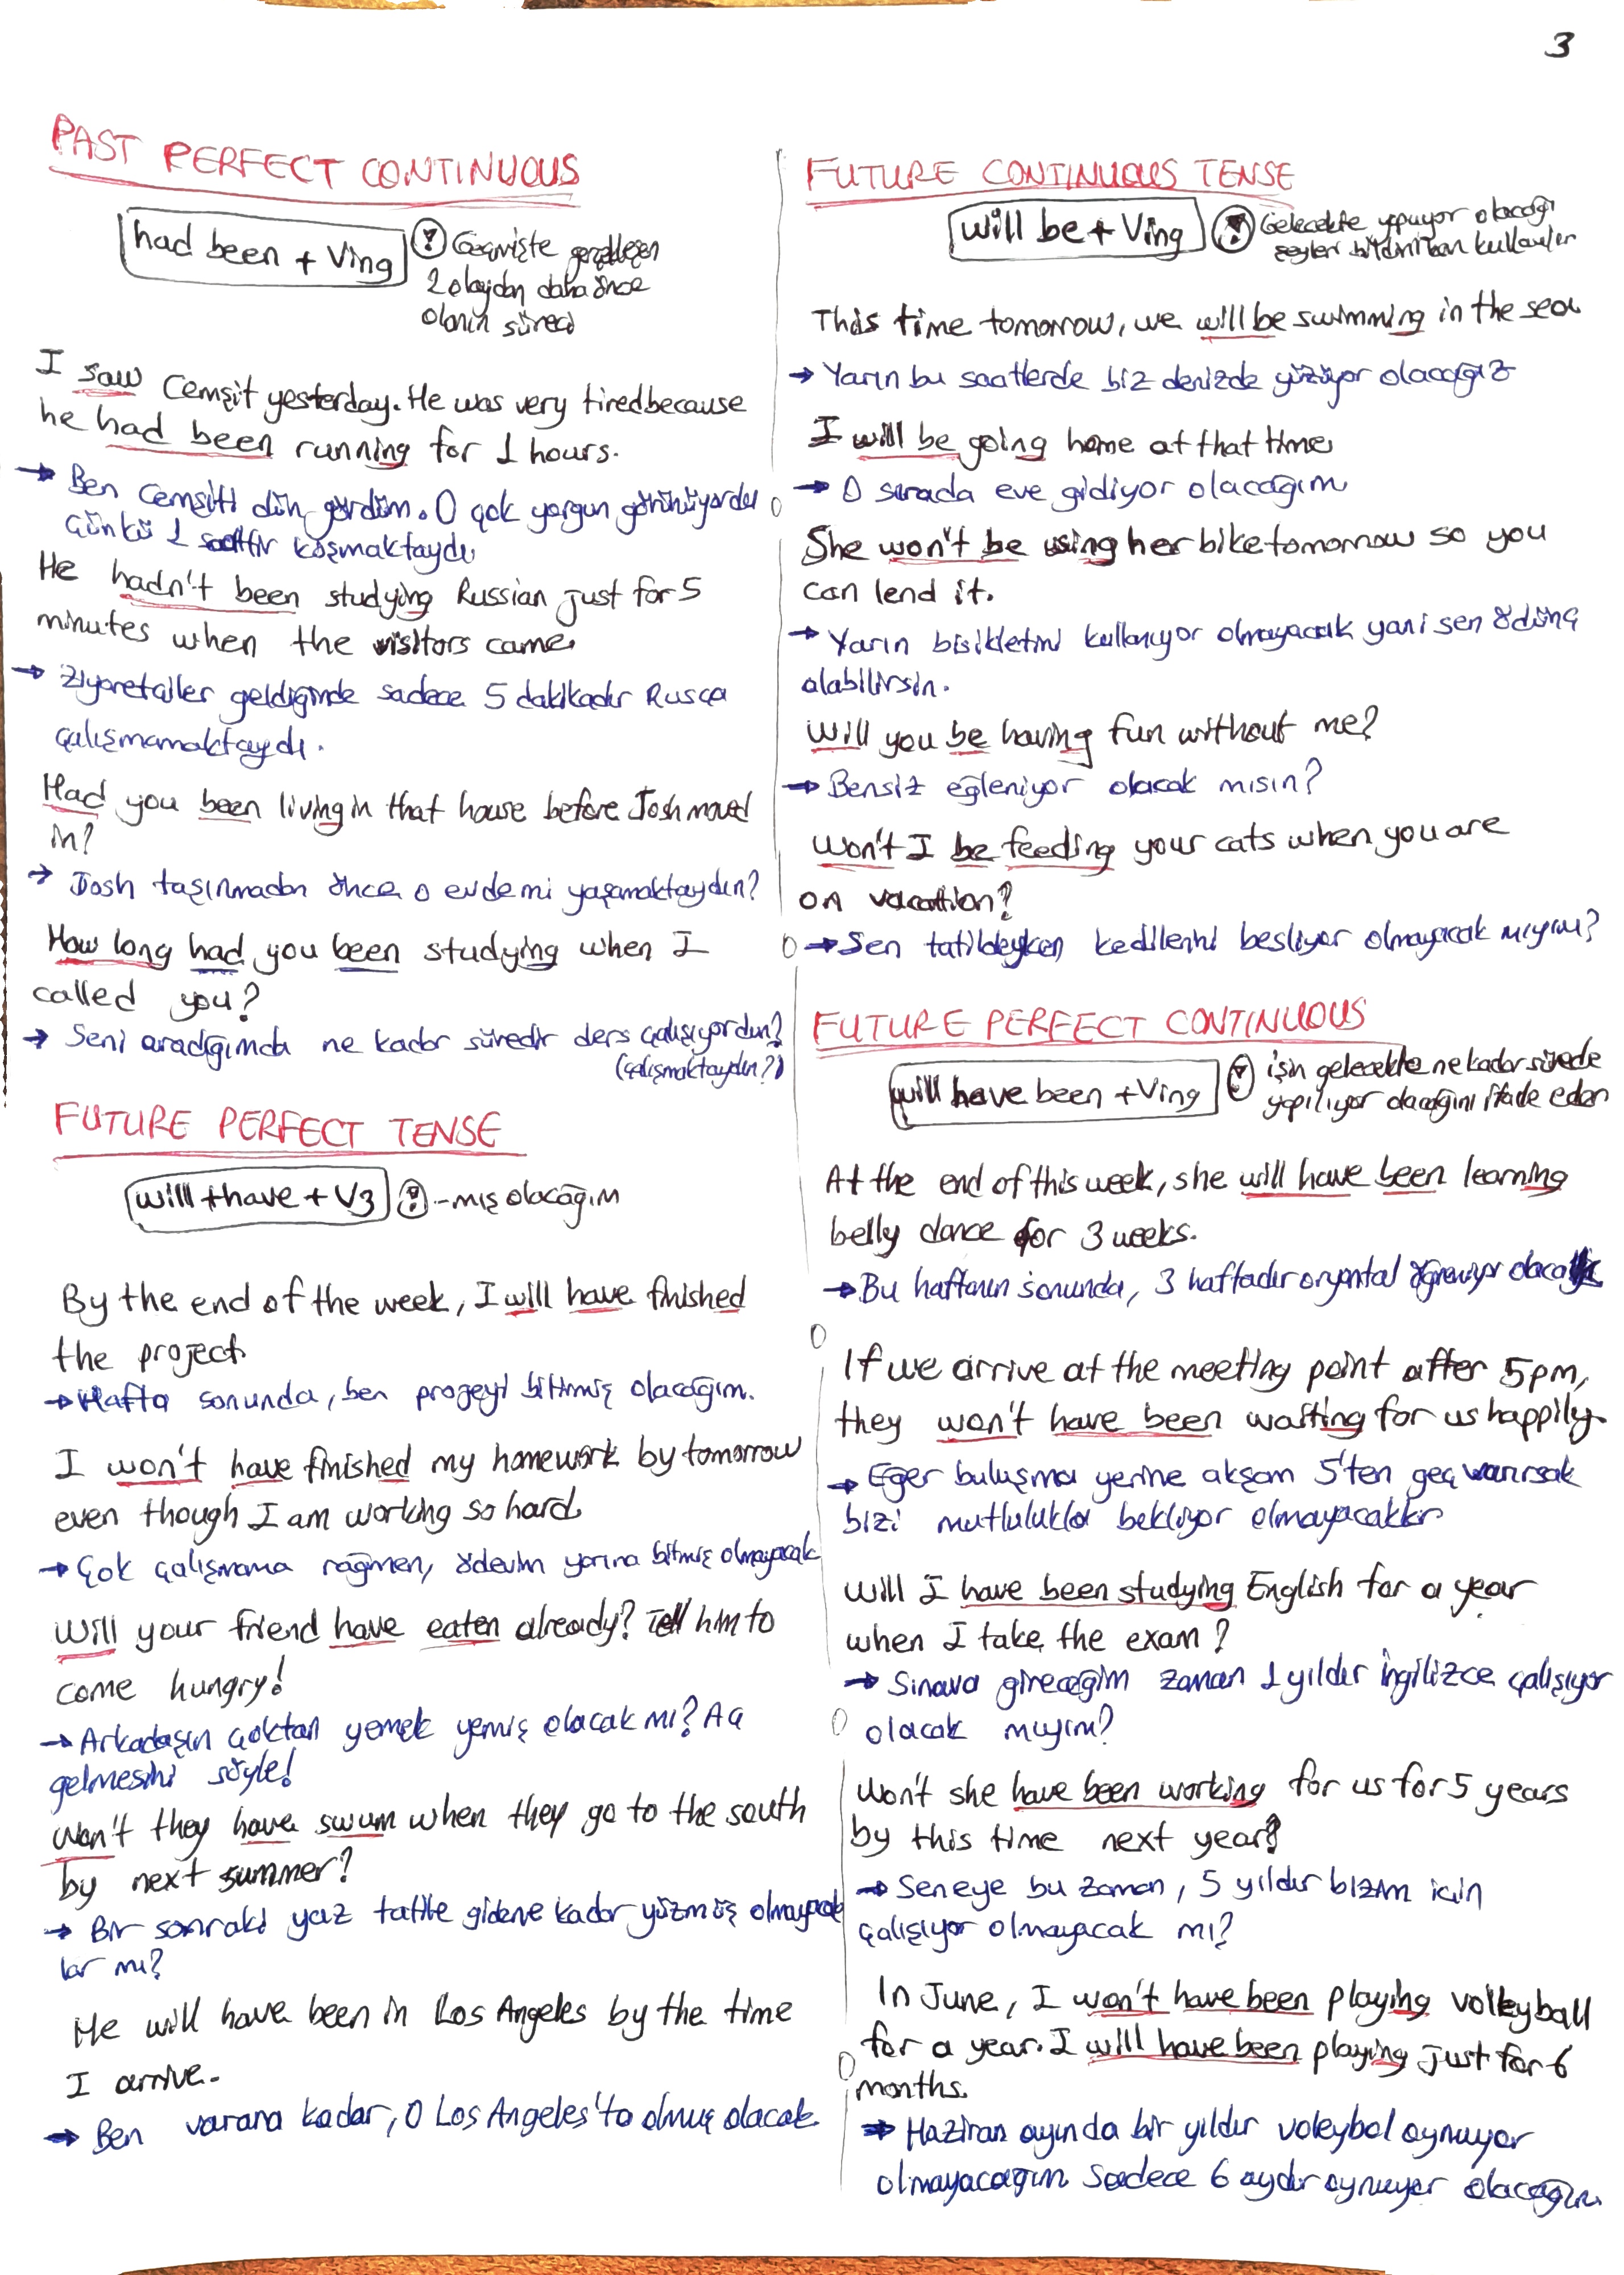 3
PAST PERFECT CONTINUOUS
had been + Ving
! Geçmişte gerçekleşen
2 olaydan daha önce
olanın süreci
I saw Cemşit yesterday. He was very tired because
he had been running for 1 hours.
→ Ben Cemşiti dün gördüm. O çok yorgun görünüyordu
Çünkü 1 saattir koşmaktaydı
He hadn't been studying Russian just for 5
minutes when the visitors came.
→ Ziyaretçiler geldiğinde sadece 5 dakikadır Rusça
çalışmamaktaydı.
Had you been living in that house before Josh moved
in?
→ Josh taşınmadan önce o evde mi yaşamaktaydın?
How long had you been studying when I
called you?
→ Seni aradığımda ne kadar süredir ders çalışıyordun?
(çalışmaktaydın?)
FUTURE PERFECT TENSE
will + have + V3
! -mış olacağım
By the end of the week, I will have finished
the project.
→ Hafta sonunda, ben projeyi bitirmiş olacağım.
I won't have finished my homework by tomorrow
even though I am working so hard.
→ Çok çalışmama rağmen, ödevim yarına bitmiş olmayacak
Will your friend have eaten already? Tell him to
come hungry!
→ Arkadaşın çoktan yemek yemiş olacak mı? Aç
gelmesini söyle!
Won't they have swum when they go to the south
by next summer?
→ Bir sonraki yaz tatile gidene kadar yüzmüş olmayacak
lar mı?
He will have been in Los Angeles by the time
I arrive.
→ Ben varana kadar, O Los Angeles'ta olmuş olacak
FUTURE CONTINUOUS TENSE
will be + Ving
! Gelecekte yapıyor olacağı
şeyleri kullanılır
This time tomorrow, we will be swimming in the sea
→ Yarın bu saatlerde biz denizde yüzüyor olacağız
I will be going home at that time
→ O sırada eve gidiyor olacağım
She won't be using her bike tomorrow so you
can lend it.
→ Yarın bisikletini kullanıyor olmayacak yani sen ödünç
alabilirsin.
Will you be having fun without me?
→ Bensiz eğleniyor olacak mısın?
Won't I be feeding your cats when you are
on vacation?
→ Sen tatildeyken kedilerini besliyor olmayacak mıyım?
FUTURE PERFECT CONTINUOUS
will have been + Ving
! işin gelecekte ne kadar sürede
yapılıyor olacağını ifade eden
At the end of this week, she will have been learning
belly dance for 3 weeks.
→ Bu haftanın sonunda, 3 haftadır oryantal öğreniyor olacak
If we arrive at the meeting point after 5pm,
they won't have been waiting for us happily.
→ Eğer buluşma yerine akşam 5'ten geç varırsak
bizi mutlulukla bekliyor olmayacaklar
Will I have been studying English for a year
when I take the exam?
→ Sınava gireceğim zaman 1 yıldır İngilizce çalışıyor
olacak mıyım?
Won't she have been working for us for 5 years
by this time next year?
→ Seneye bu zaman, 5 yıldır bizim için
çalışıyor olmayacak mı?
In June, I won't have been playing volleyball
for a year. I will have been playing just for 6
months.
→ Haziran ayında bir yıldır voleybol oynuyor
olmayacağım sadece 6 aydır oynuyor olacağım